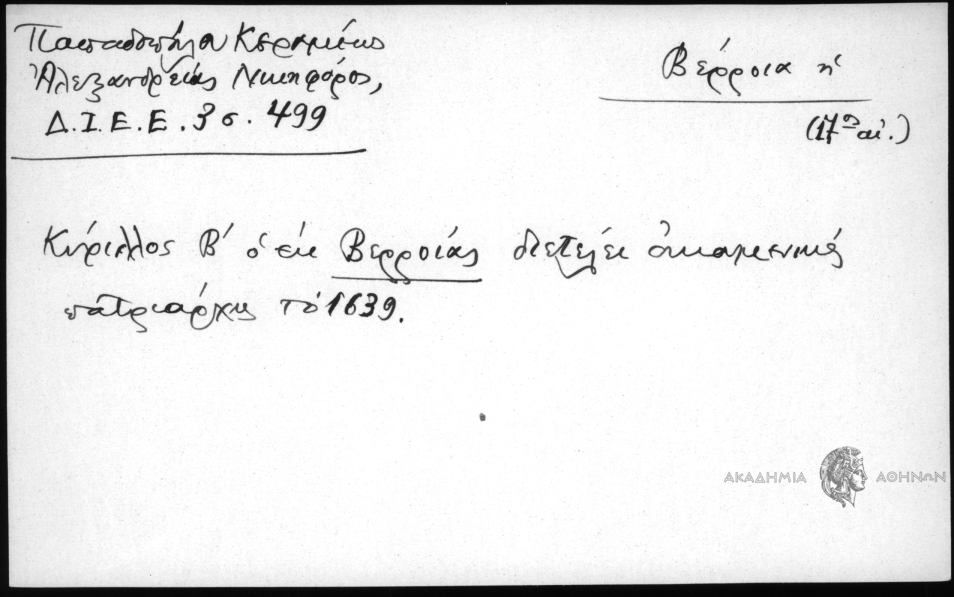 Παπαδοπούλου Κεραμέως
Ἀλεξανδρείας Νικηφόρος,
Δ.Ι.Ε.Ε. 3 σ. 499
Βέρροια ἡ
(17ος αἰ.)
Κύριλλος Β΄ ὁ ἐκ Βερροίας διετέλει οἰκουμενικὸς
πατριάρχης τὸ 1639.
ΑΚΑΔΗΜΙΑ ΑΘΗΝΩΝ